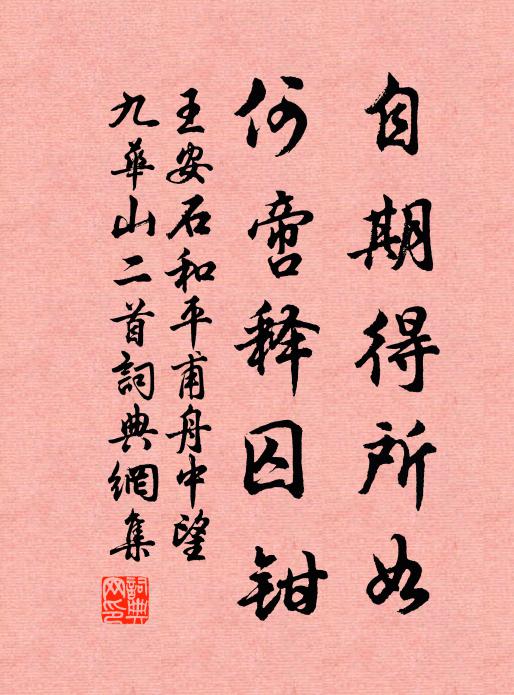 自期得所如
何啻释囚钳
王安石和平甫舟中望
九華山二首詞典網集
詞典网印